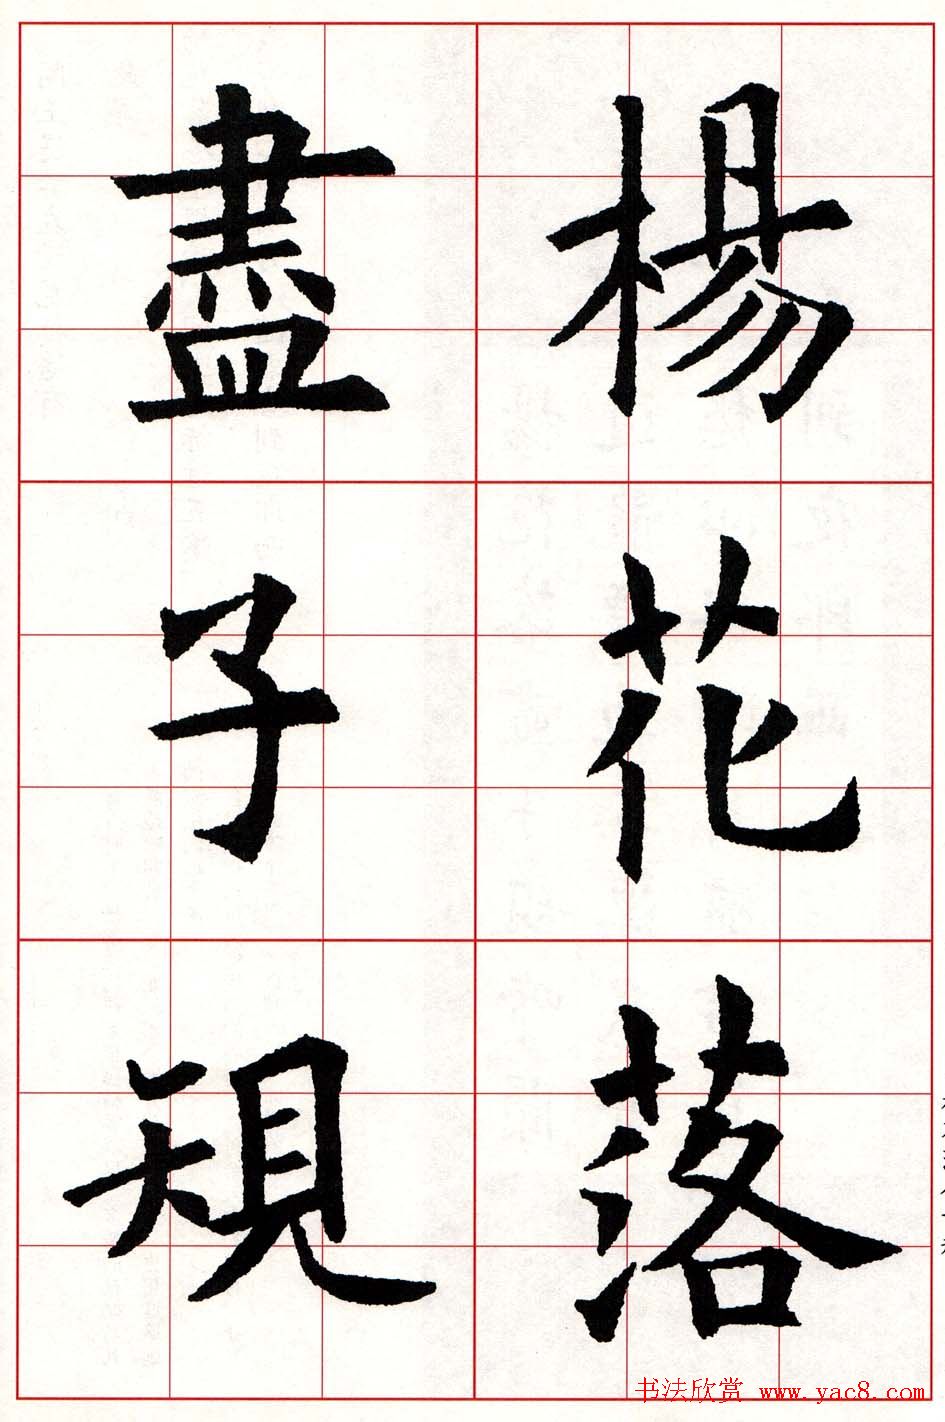 楊花落
盡子䂓
书法欣赏 www.yac8.com